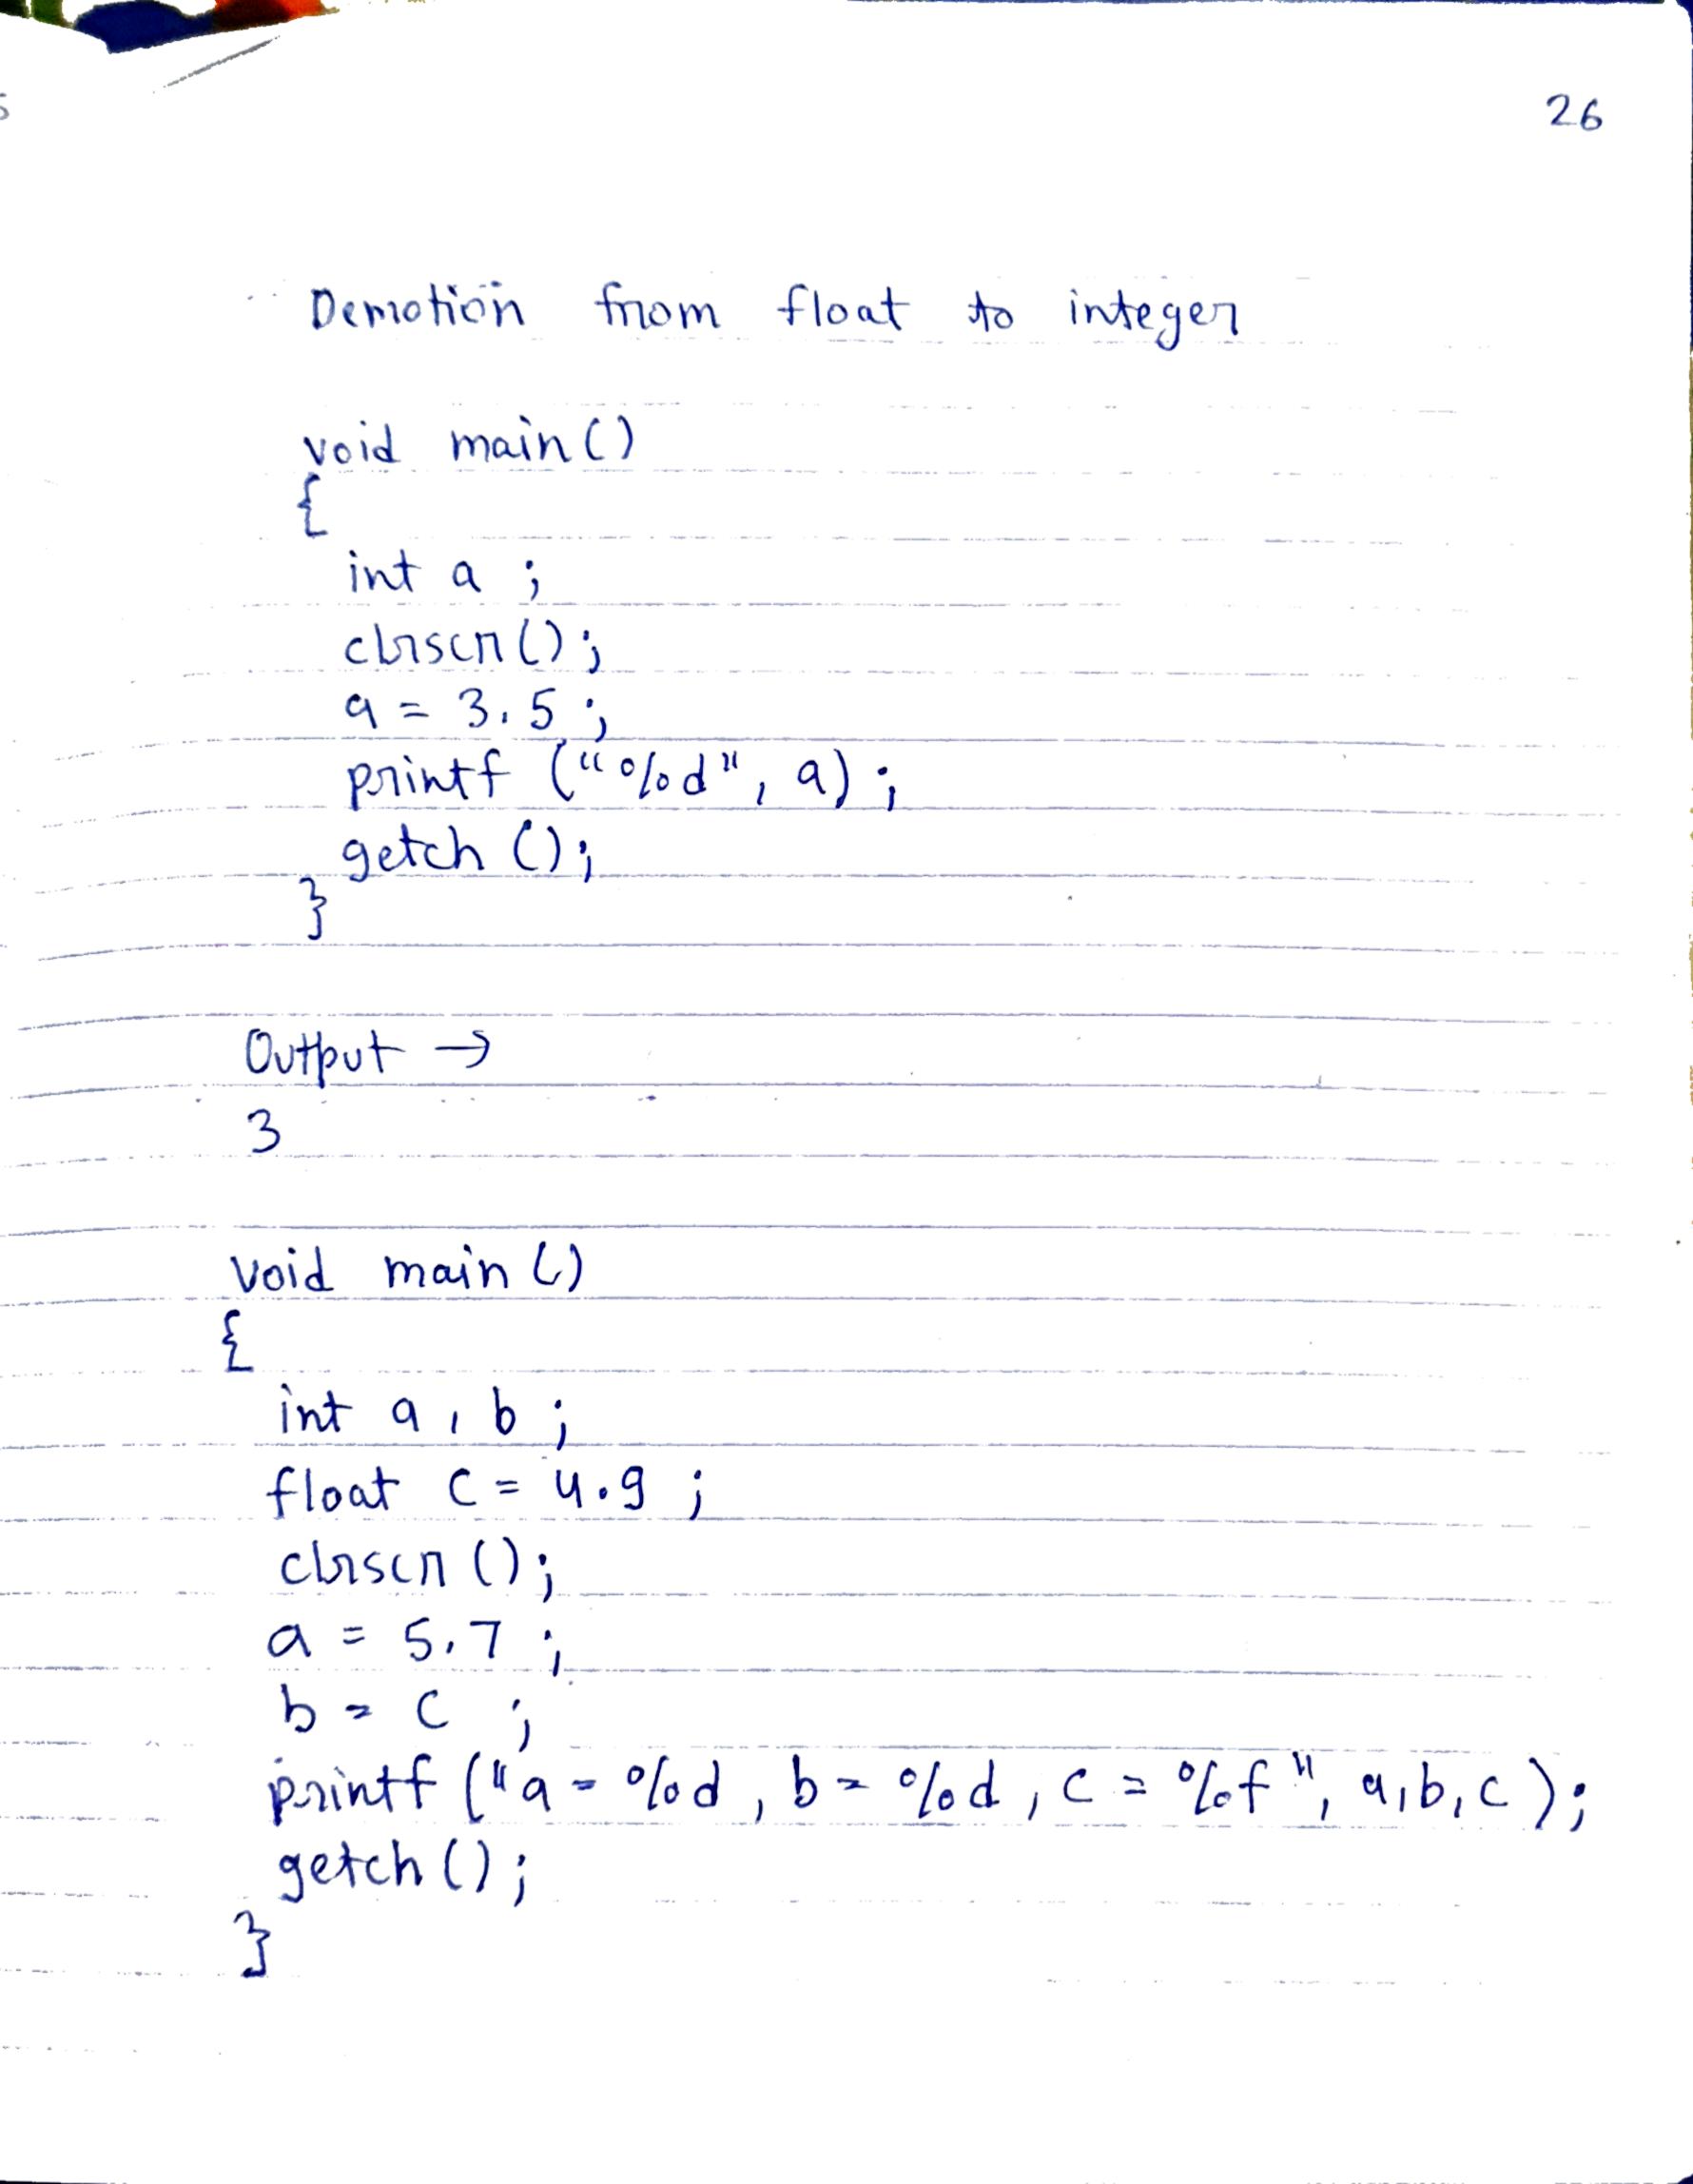 26
Demotion from float to integer
void main()
{
int a ;
clrscr();
a = 3.5 ;
printf ("%d", a) ;
getch ();
}
Output →
3
void main ()
{
int a, b ;
float c = 4.9 ;
clrscr ();
a = 5.7 ;
b = c ;
printf ("a = %d, b = %d, c = %f", a,b,c );
getch ();
}